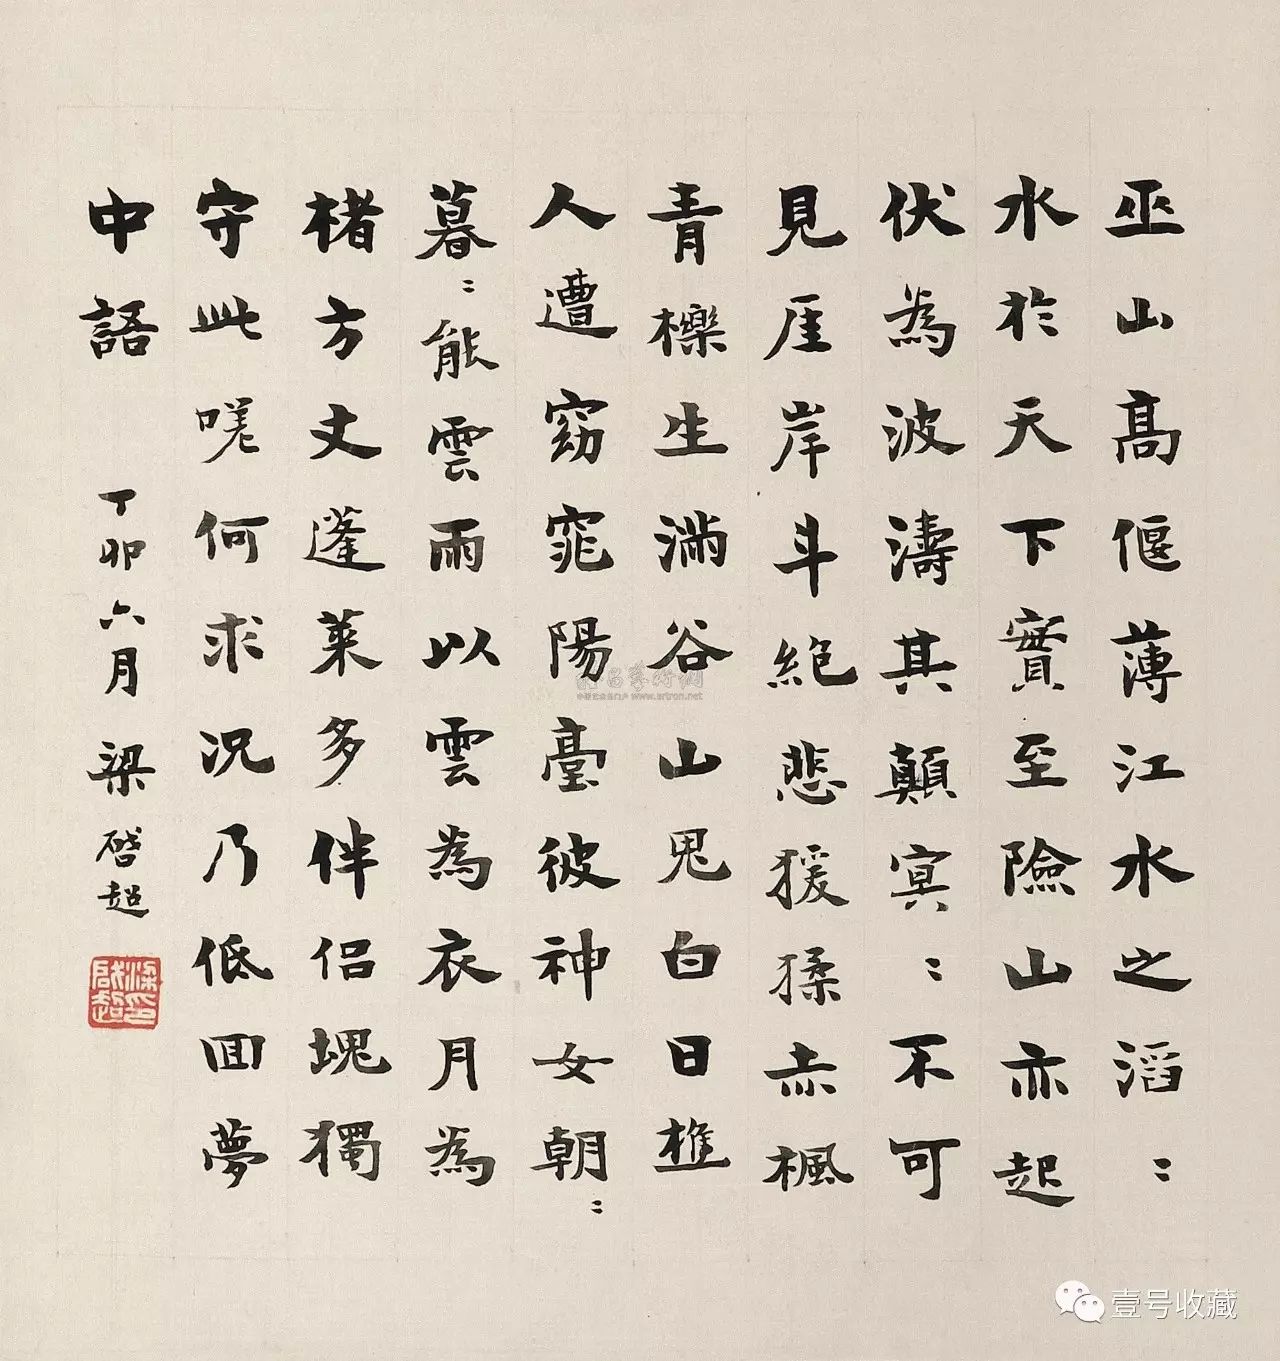 巫山高偃薄江水之滔〻
水於天下實至險山亦起
伏為波濤其顛冥〻不可
見厓岸斗絕悲猨猱赤楓
青櫟生滿谷山鬼白日樵
人遭窈窕陽臺彼神女朝〻
暮〻能雲雨以雲為衣月為
楮方丈蓬萊多伴侶塊獨
守此嗟何求況乃低回夢
中語
丁卯六月 梁啓超
梁啟超印
www.artron.net
壹号收藏